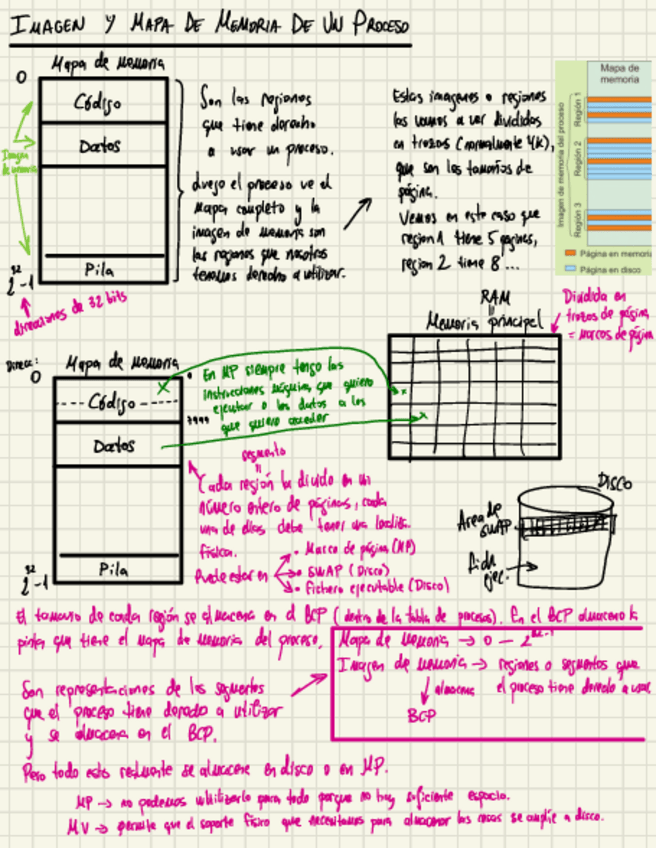 IMAGEN Y MAPA DE MEMORIA DE UN PROCESO
Mapa de memoria
0
Código
Datos
Pila
Imagen
de memoria
2^32-1
direcciones de 32 bits
Son las regiones
que tiene derecho
a usar un proceso.
Luego el proceso ve el
mapa completo y la
imagen de memoria son
las regiones que nosotros
tenemos derecho a utilizar.
Estas imágenes o regiones
las vamos a ver divididas
en trozos (normalmente 4k),
que son los tamaños de
página.
Vemos en este caso que
region 1 tiene 5 páginas,
region 2 tiene 8 ...
Mapa de
memoria
Imagen de memoria del proceso
Región 1
Región 2
Región 3
Página en memoria
Página en disco
RAM
Memoria principal
Dividida en
trozos de página
= marcos de página
Direcc:
Mapa de memoria
0
Código
Datos
Pila
2^32-1
En MP siempre tengo las
instrucciones máquina que quiero
ejecutar o los datos a los
que quiero acceder
segmento
Cada región la divido en un
número entero de páginas, cada
una de ellas debe tener una localiz.
física.
Puede estar en
• Marco de página (MP)
• SWAP (Disco)
• Fichero ejecutable (Disco)
DISCO
Area de
SWAP
Fich
ejec.
El tamaño de cada región se almacena en el BCP (dentro de la tabla de procesos). En el BCP almaceno la
pinta que tiene el mapa de memoria del proceso.
Mapa de memoria → 0 - 2^32-1
Imagen de memoria → regiones o segmentos que
el proceso tiene derecho a usar
almacena
BCP
Son representaciones de los segmentos
que el proceso tiene derecho a utilizar
y se almacena en el BCP.
Pero todo esto realmente se almacena en disco o en MP.
MP → no podemos utilizarlo para todo porque no hay suficiente espacio.
MV → permite que el soporte físico que necesitamos para almacenar las cosas se amplíe a disco.